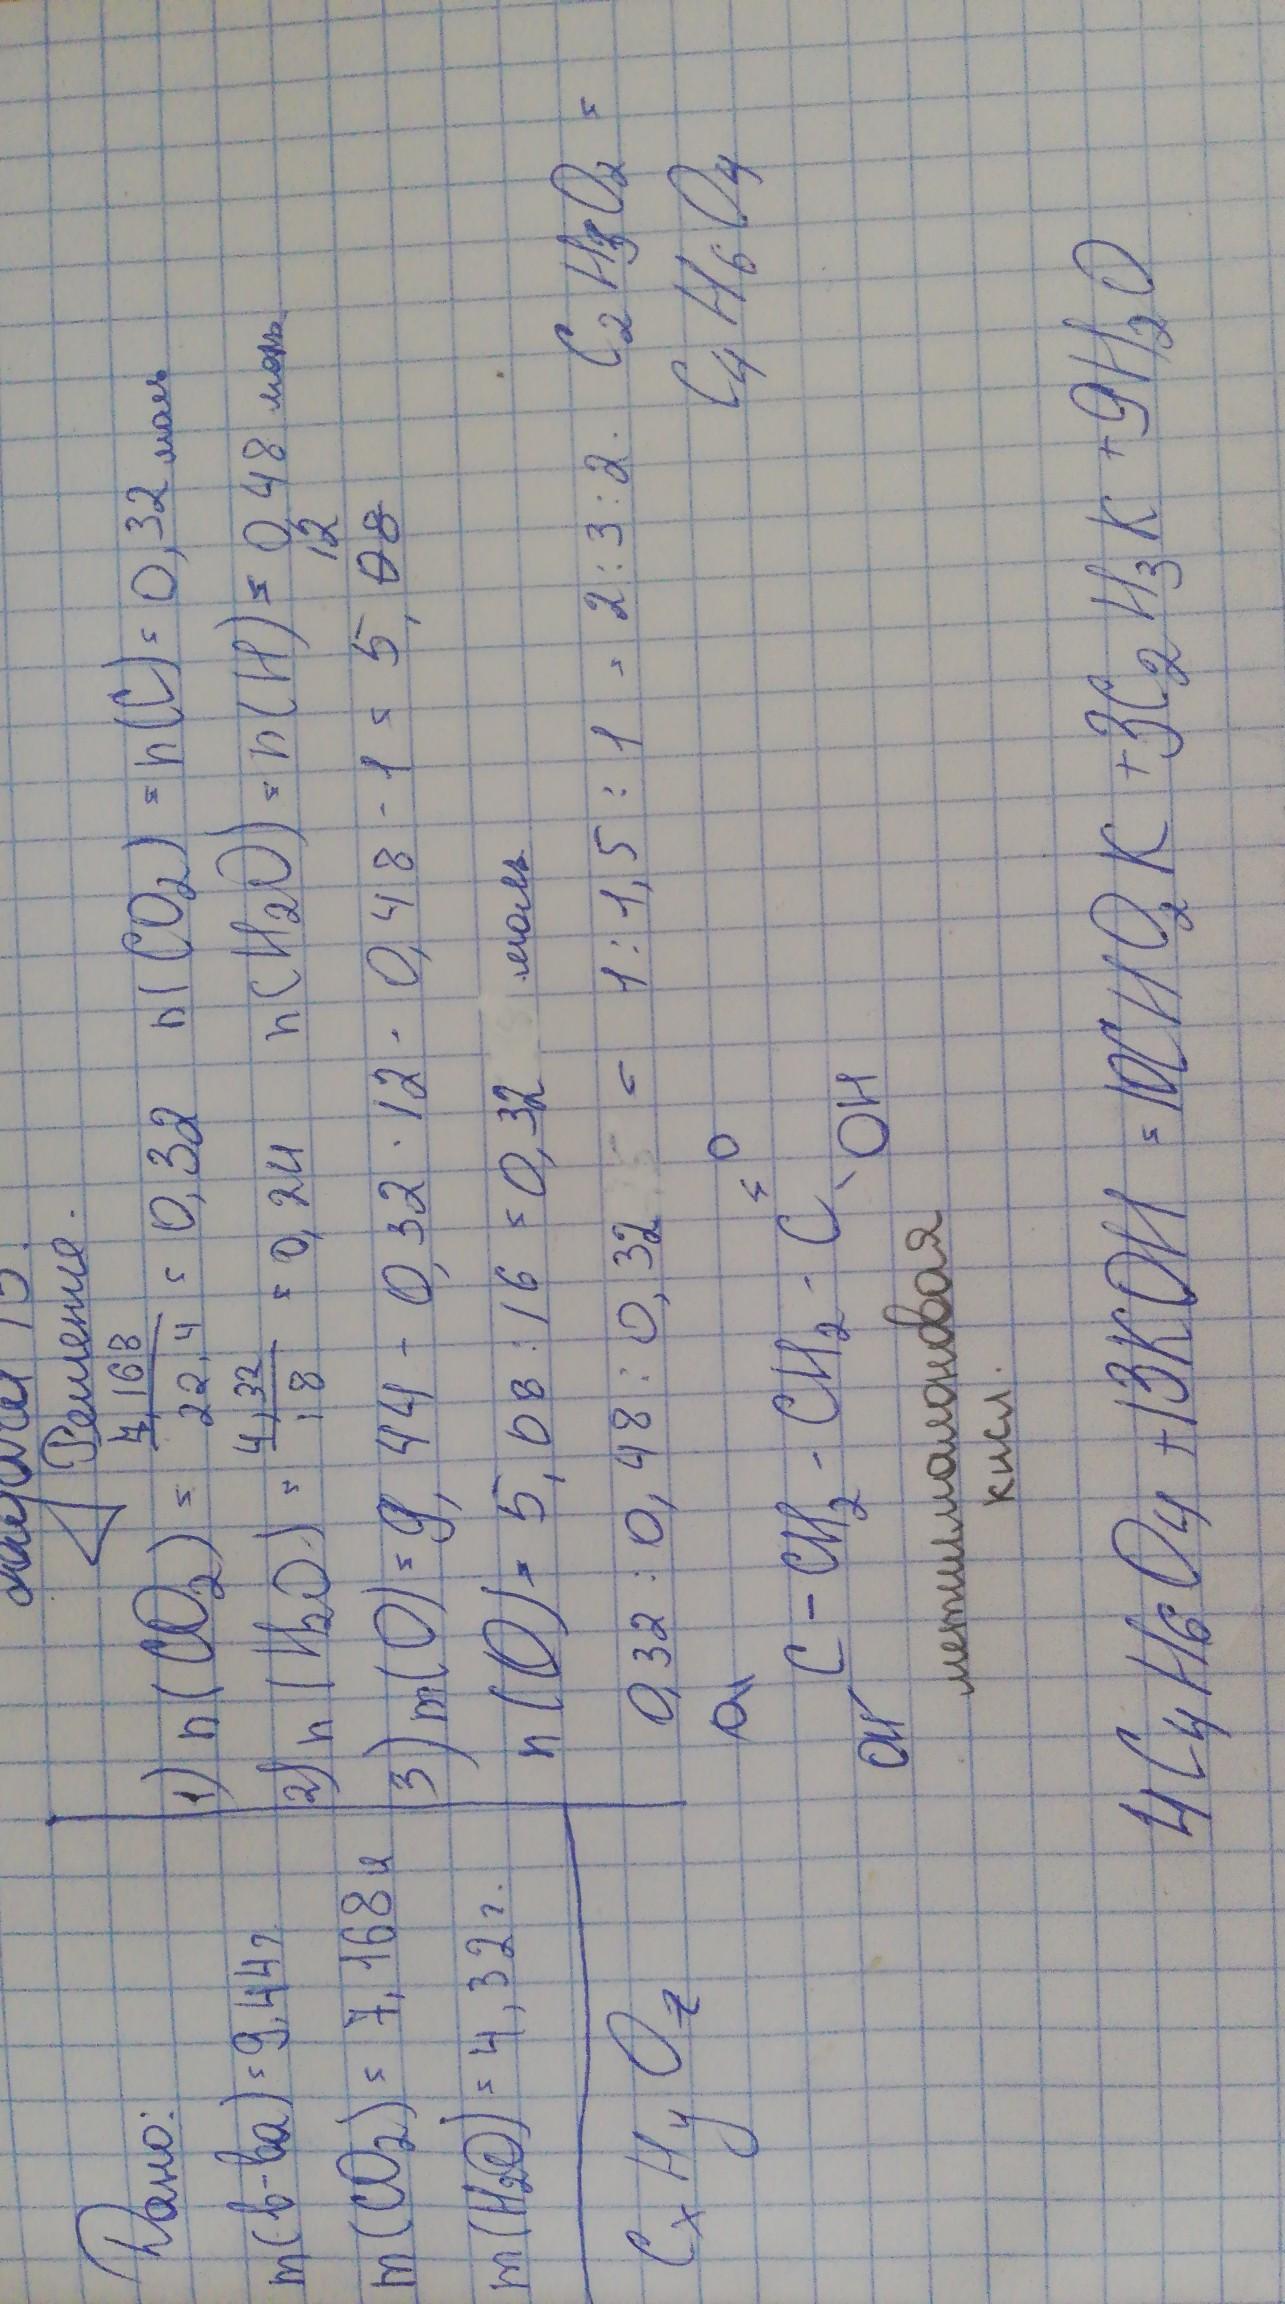 Решение.
Дано:
m(в-ва)=9,44г.
m(CO2)=7,168л
m(H2O)=4,32г.
CxHyOz
1) n(CO2) = 7,168/22,4 = 0,32 n(CO2) = n(C) = 0,32 моль
2) n(H2O) = 4,32/18 = 0,24 n(H2O) = n(H) = 0,48 моль
3) m(O) = 9,44 - 0,32 · 12 - 0,48 · 1 = 5,12
n(O) = 5,08 : 16 = 0,32 моль
0,32 : 0,48 : 0,32 = 1 : 1,5 : 1 = 2 : 3 : 2. C2H3O2 =
C4H6O4
O \\ C - CH2 - CH2 - C = O
OH - OH
метилмалоновая
кисл.
4C4H6O4 + 13KOH = 10CHO2K + 3C2H3K + 9H2O